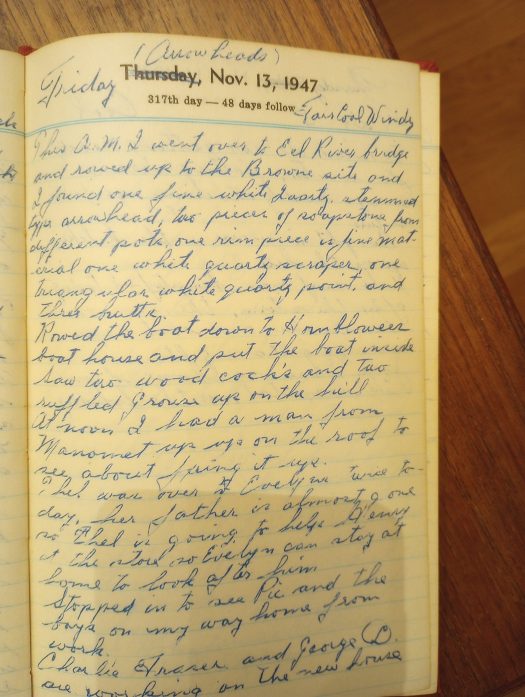 (Arrowheads)
Friday Thursday, Nov. 13, 1947
317th day — 48 days follow Fair Cool Windy
This A.M. I went over to Eel River bridge
and rowed up to the Browne site and
I found one fine white Quartz stemmed
type arrowhead, two pieces of soapstone from
different pots, one rim piece is fine mat-
erial one white quartz scraper, one
triangular white quartz point, and
three butts.
Rowed the boat down to Hornblower
boat house and put the boat inside
Saw two wood cock's and two
ruffled Grouse up on the hill
At noon I had a man from
Manomet up up on the roof to
see about fixing it up.
Thel was over to Evelyns twice to-
day, her father is almost gone
so Thel is going to help Henry
at the store so Evelyn can stay at
home to look after him
Stopped in to see Pic and the
boys on my way home from
work.
Charlie Fraser and George D.
are working on the new house